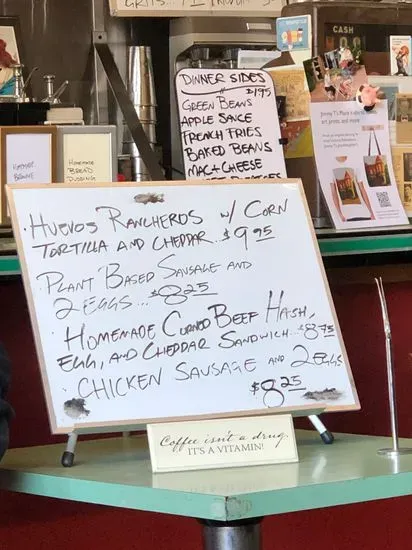 CASH
DINNER SIDES
$1.95
GREEN BEANS
APPLE SAUCE
FRENCH FRIES
BAKED BEANS
MAC+CHEESE
HOMEMADE
BREAD
PUDDING
HUEVOS RANCHEROS W/ CORN
TORTILLA AND CHEDDAR... $9.95
PLANT BASED SAUSAGE AND
2 EGGS... $8.25
· HOMEMADE CORNED BEEF HASH,
EGG, AND CHEDDAR SANDWICH... $8.75
· CHICKEN SAUSAGE AND 2 EGGS
$8.25
Coffee isn't a drug.
IT'S A VITAMIN!